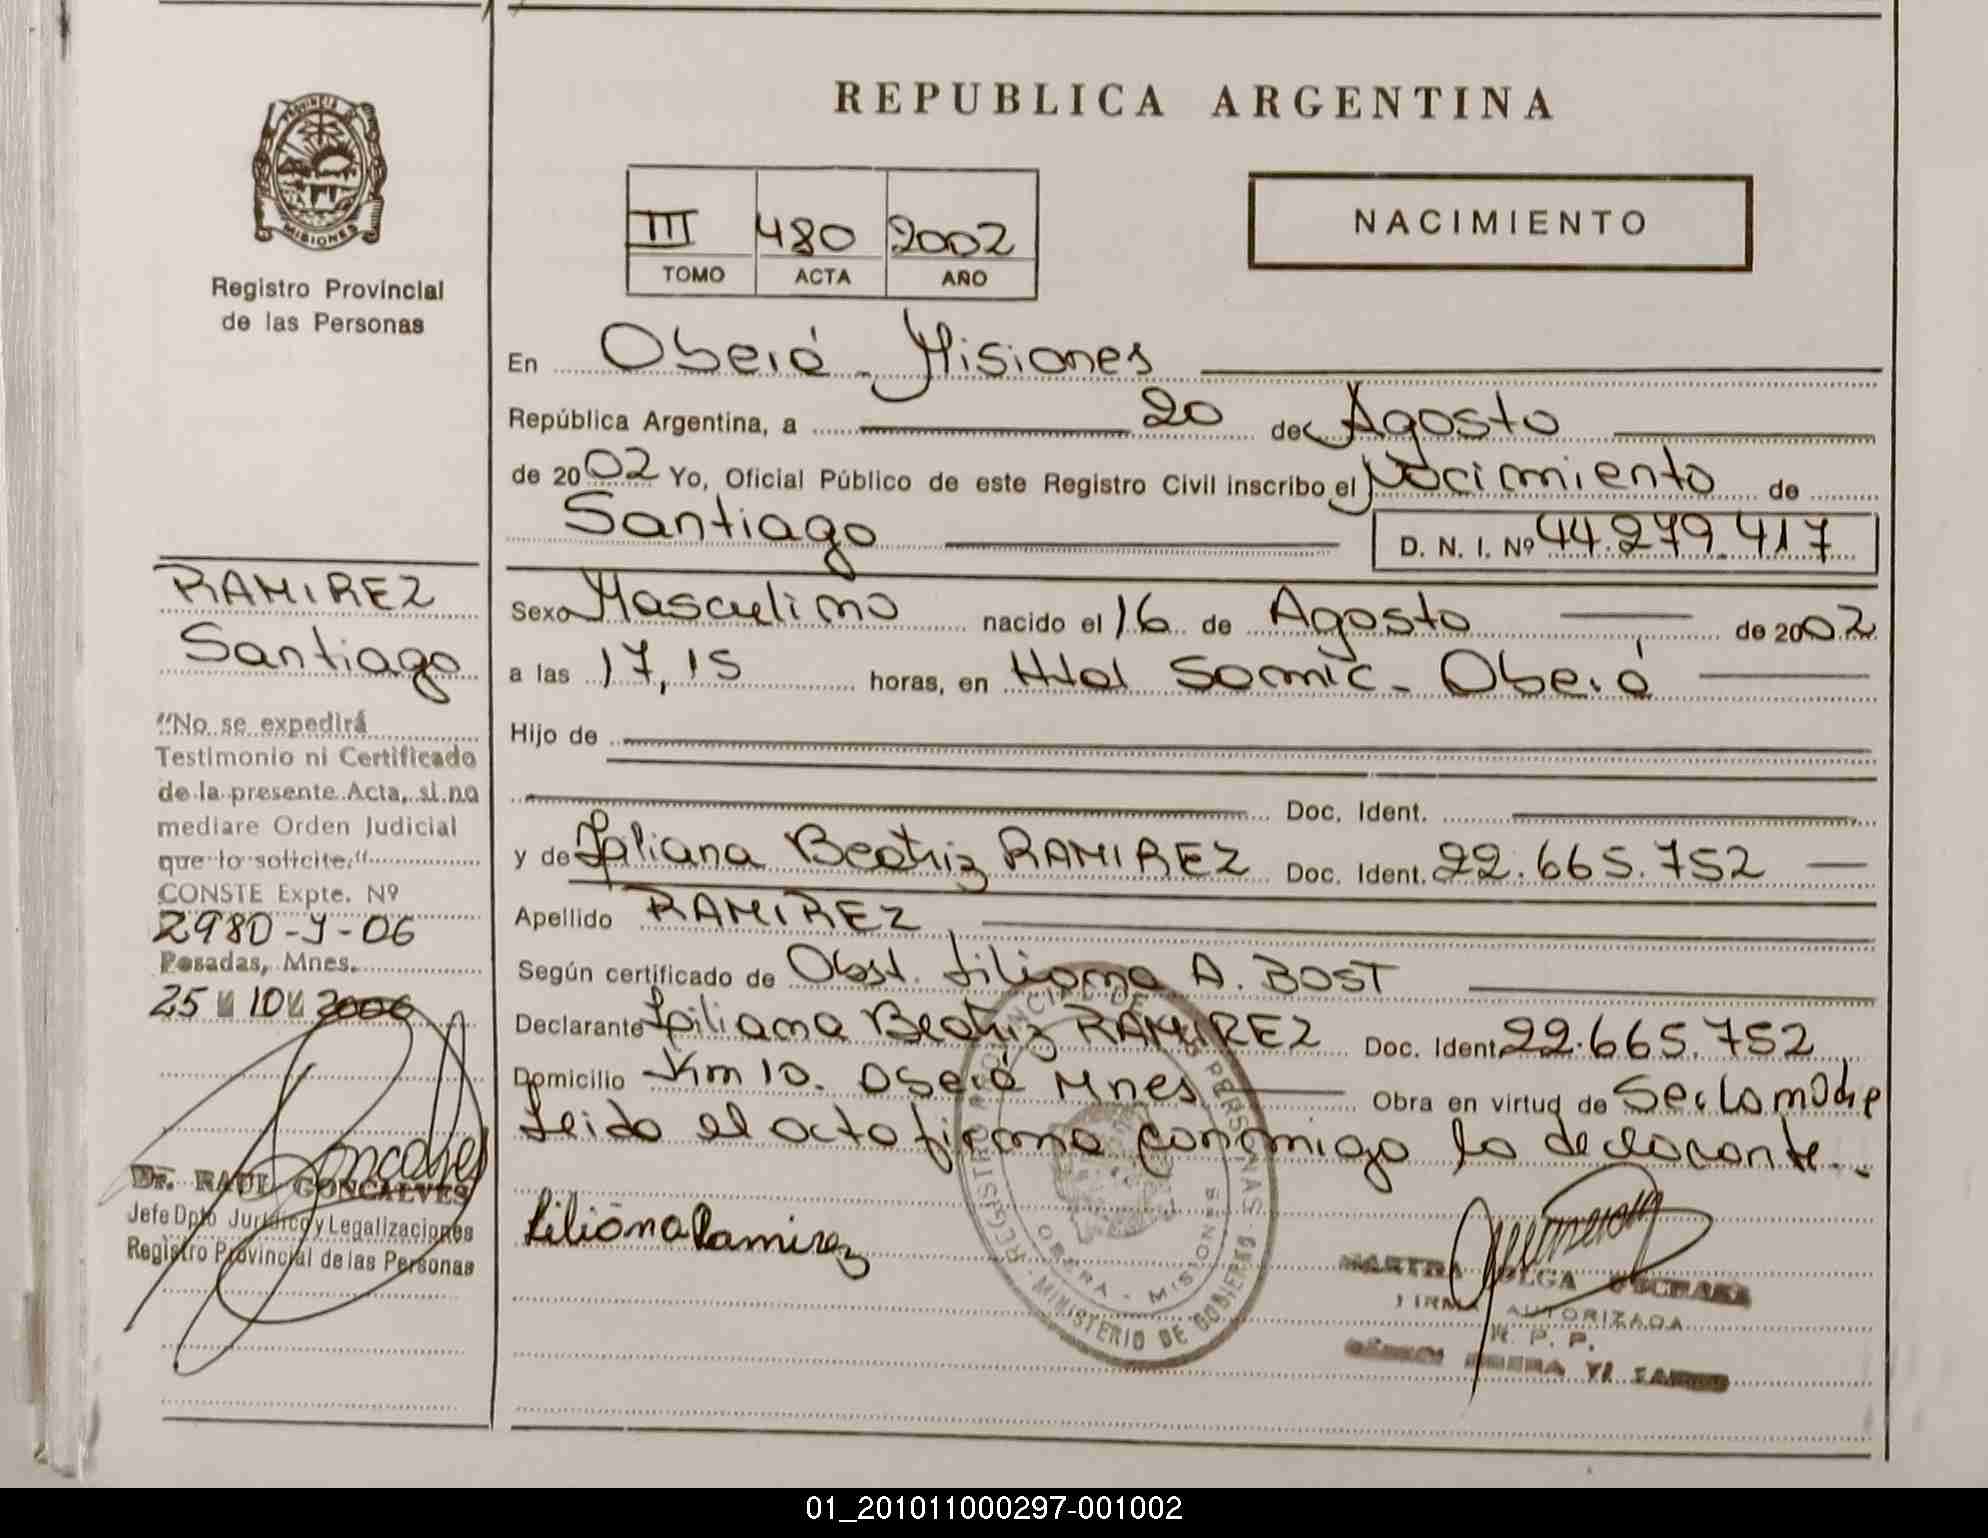 PROVINCIA DE
MISIONES
Registro Provincial
de las Personas
REPUBLICA ARGENTINA
NACIMIENTO
III 480 2002
TOMO ACTA AÑO
En Oberá - Misiones
República Argentina, a 20 de Agosto
de 2002 Yo, Oficial Público de este Registro Civil inscribo el Nacimiento de
Santiago D. N. I. Nº 44.279.417
Sexo Masculino nacido el 16 de Agosto de 2002
a las 17,15 horas, en Htal Samic - Oberá
Hijo de
Doc. Ident.
y de Liliana Beatriz RAMIREZ Doc. Ident. 22.665.752
Apellido RAMIREZ
Según certificado de Obst. Liliana A. BOST
Declarante Liliana Beatriz RAMIREZ Doc. Ident. 22.665.752
Domicilio Km 10. Oberá Mnes Obra en virtud de Ser la madre
Leido el acta firma conmigo la declarante.-
Liliana Ramirez
REGISTRO PROVINCIAL DE LAS PERSONAS - MINISTERIO DE GOBIERNO
OBERA - MISIONES
MARTHA OLGA
FIRMA AUTORIZADA
R. P. P.
OBERA VI
RAMIREZ
Santiago
"No se expedirá
Testimonio ni Certificado
de la presente Acta, si no
mediare Orden Judicial
que lo solicite."
CONSTE Expte. Nº
2980-J-06
Posadas, Mnes.
25 10 2006
Goncalves
Dr. RAUL GONCALVES
Jefe Dpto Jurídico y Legalizaciones
Registro Provincial de las Personas
01_201011000297-001002